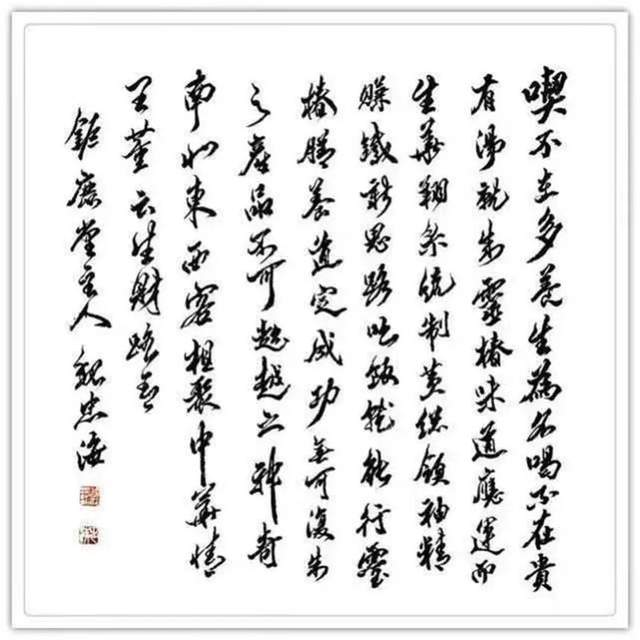 喫不在多養生為名喝不在貴
有湯就朱靈椿味道應運而
生華翔系統制黃總領袖精
識新思路吃飯就能行靈
椿膳養道定成功無可復朱
之產品不可超越之神奇
南北東西客相聚中華情
王董云生財路
鉅鹿堂主人 魏忠海